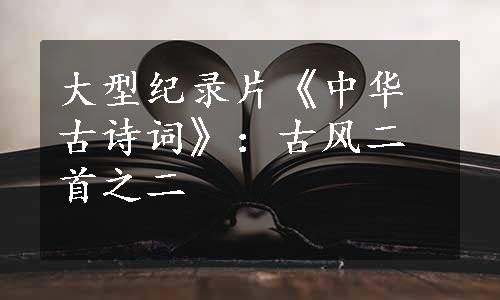 大型纪录片《中华
古诗词》：古风二
首之二